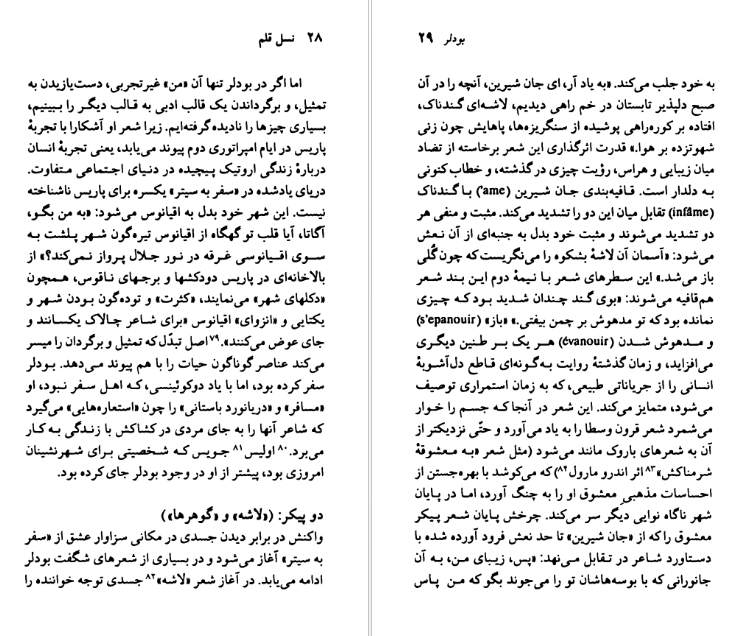 ۲۸ نسل قلم
اما اگر در بودلر تنها آن «من» غیرتجربی، دست‌یازیدن به
تمثیل، و برگرداندن یک قالب ادبی به قالب دیگر را ببینیم،
بسیاری چیزها را نادیده گرفته‌ایم. زیرا شعر او آشکارا با تجربهٔ
پاریس در ایام امپراتوری دوم پیوند می‌یابد، یعنی تجربهٔ انسان
دربارهٔ زندگی اروتیک پیچیده در دنیای اجتماعی متفاوت.
دریای یادشده در «سفر به سیتر» یکسره برای پاریس ناشناخته
نیست. این شهر خود بدل به اقیانوس می‌شود: «به من بگو،
آگاتا، آیا قلب تو گهگاه از اقیانوس تیره‌گون شهر پلشت به
سوی اقیانوسی غرقه در نور جلال پرواز نمی‌کند؟» از
بالاخانه‌ای در پاریس دودکشها و برجهای ناقوس، همچون
«دکلهای شهر» می‌نمایند، «کثرت» و توده‌گون بودن شهر و
یکتایی و «انزوای» اقیانوس «برای شاعر چالاک یکسانند و
جای عوض می‌کنند».۷۹ اصل تبدّل که تمثیل و برگردان را میسر
می‌کند عناصر گوناگون حیات را با هم پیوند می‌دهد. بودلر
سفر کرده بود، اما با یاد دوکوئینسی، که اهل سفر نبود، او
«مسافر» و «دریانورد باستانی» را چون «استعاره‌هایی» می‌گیرد
که شاعر آنها را به جای مردی در کشاکش با زندگی به کار
می‌برد.۸۰ اولیس۸۱ جویس که شخصیتی برای شهرنشینان
امروزی بود، پیشتر از او در وجود بودلر جای کرده بود.
دو پیکر: («لاشه» و «گوهرها»)
واکنش در برابر دیدن جسدی در مکانی سزاوار عشق از «سفر
به سیتر» آغاز می‌شود و در بسیاری از شعرهای شگفت بودلر
ادامه می‌یابد. در آغاز شعر «لاشه»۸۲ جسدی توجه خواننده را
بودلر ۲۹
به خود جلب می‌کند. «به یاد آر، ای جان شیرین، آنچه را در آن
صبح دلپذیر تابستان در خم راهی دیدیم، لاشه‌ای گندناک،
افتاده بر کوره‌راهی پوشیده از سنگریزه‌ها، پاهایش چون زنی
شهوتزده بر هوا.» قدرت اثرگذاری این شعر برخاسته از تضاد
میان زیبایی و هراس، رؤیت چیزی در گذشته، و خطاب کنونی
به دلدار است. قافیه‌بندی جان شیرین (âme) با گندناک
(infâme) تقابل میان این دو را تشدید می‌کند. مثبت و منفی هر
دو تشدید می‌شوند و مثبت خود بدل به جنبه‌ای از آن نعش
می‌شود: «آسمان آن لاشهٔ بشکوه را می‌نگریست که چون گُلی
باز می‌شد.» این سطرهای شعر با نیمهٔ دوم این بند شعر
هم‌قافیه می‌شوند: «بوی گند چندان شدید بود که چیزی
نمانده بود که تو مدهوش بر چمن بیفتی.» «باز» (s'epanouir)
و مدهوش شدن (évanouir) هر یک بر طنین دیگری
می‌افزاید، و زمان گذشتهٔ روایت به‌گونه‌ای قاطع دل‌آشوبهٔ
انسانی را از جریاناتی طبیعی، که به زمان استمراری توصیف
می‌شود، متمایز می‌کند. این شعر در آنجا که جسم را خوار
می‌شمرد شعر قرون وسطا را به یاد می‌آورد و حتّی نزدیکتر از
آن به شعرهای باروک مانند می‌شود (مثل شعر «به معشوقهٔ
شرمناکش»۸۳ اثر اندرو مارول۸۴) که می‌کوشد با بهره‌جستن از
احساسات مذهبی معشوق او را به چنگ آورد، اما در پایان
شهر ناگاه نوایی دیگر سر می‌کند. چرخش پایان شعر پیکر
معشوق را که از «جان شیرین» تا حد نعش فرود آورده شده با
دستاورد شاعر در تقابل می‌نهد: «پس، زیبای من، به آن
جانورانی که با بوسه‌هاشان تو را می‌جوند بگو که من پاس